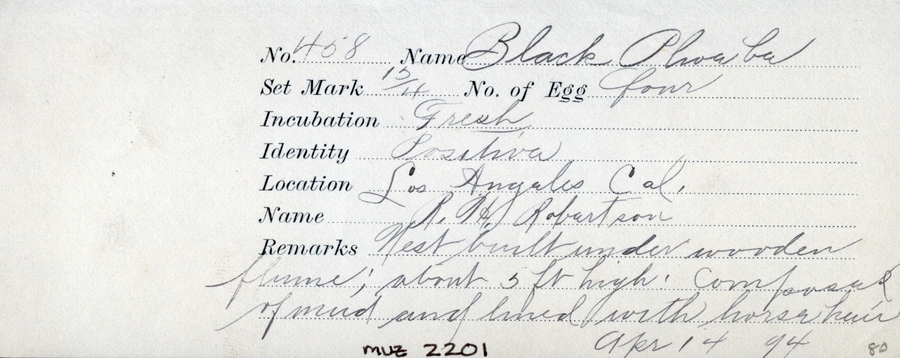 No. 458 Name Black Phoebe
Set Mark 15/4 No. of Egg four
Incubation Fresh
Identity Positive
Location Los Angeles Cal.
Name R. H. Robertson
Remarks Nest built under wooden
flume; about 5 ft high. Composed
of mud and lined with horse hair
Apr 14 94
muz 2201
80